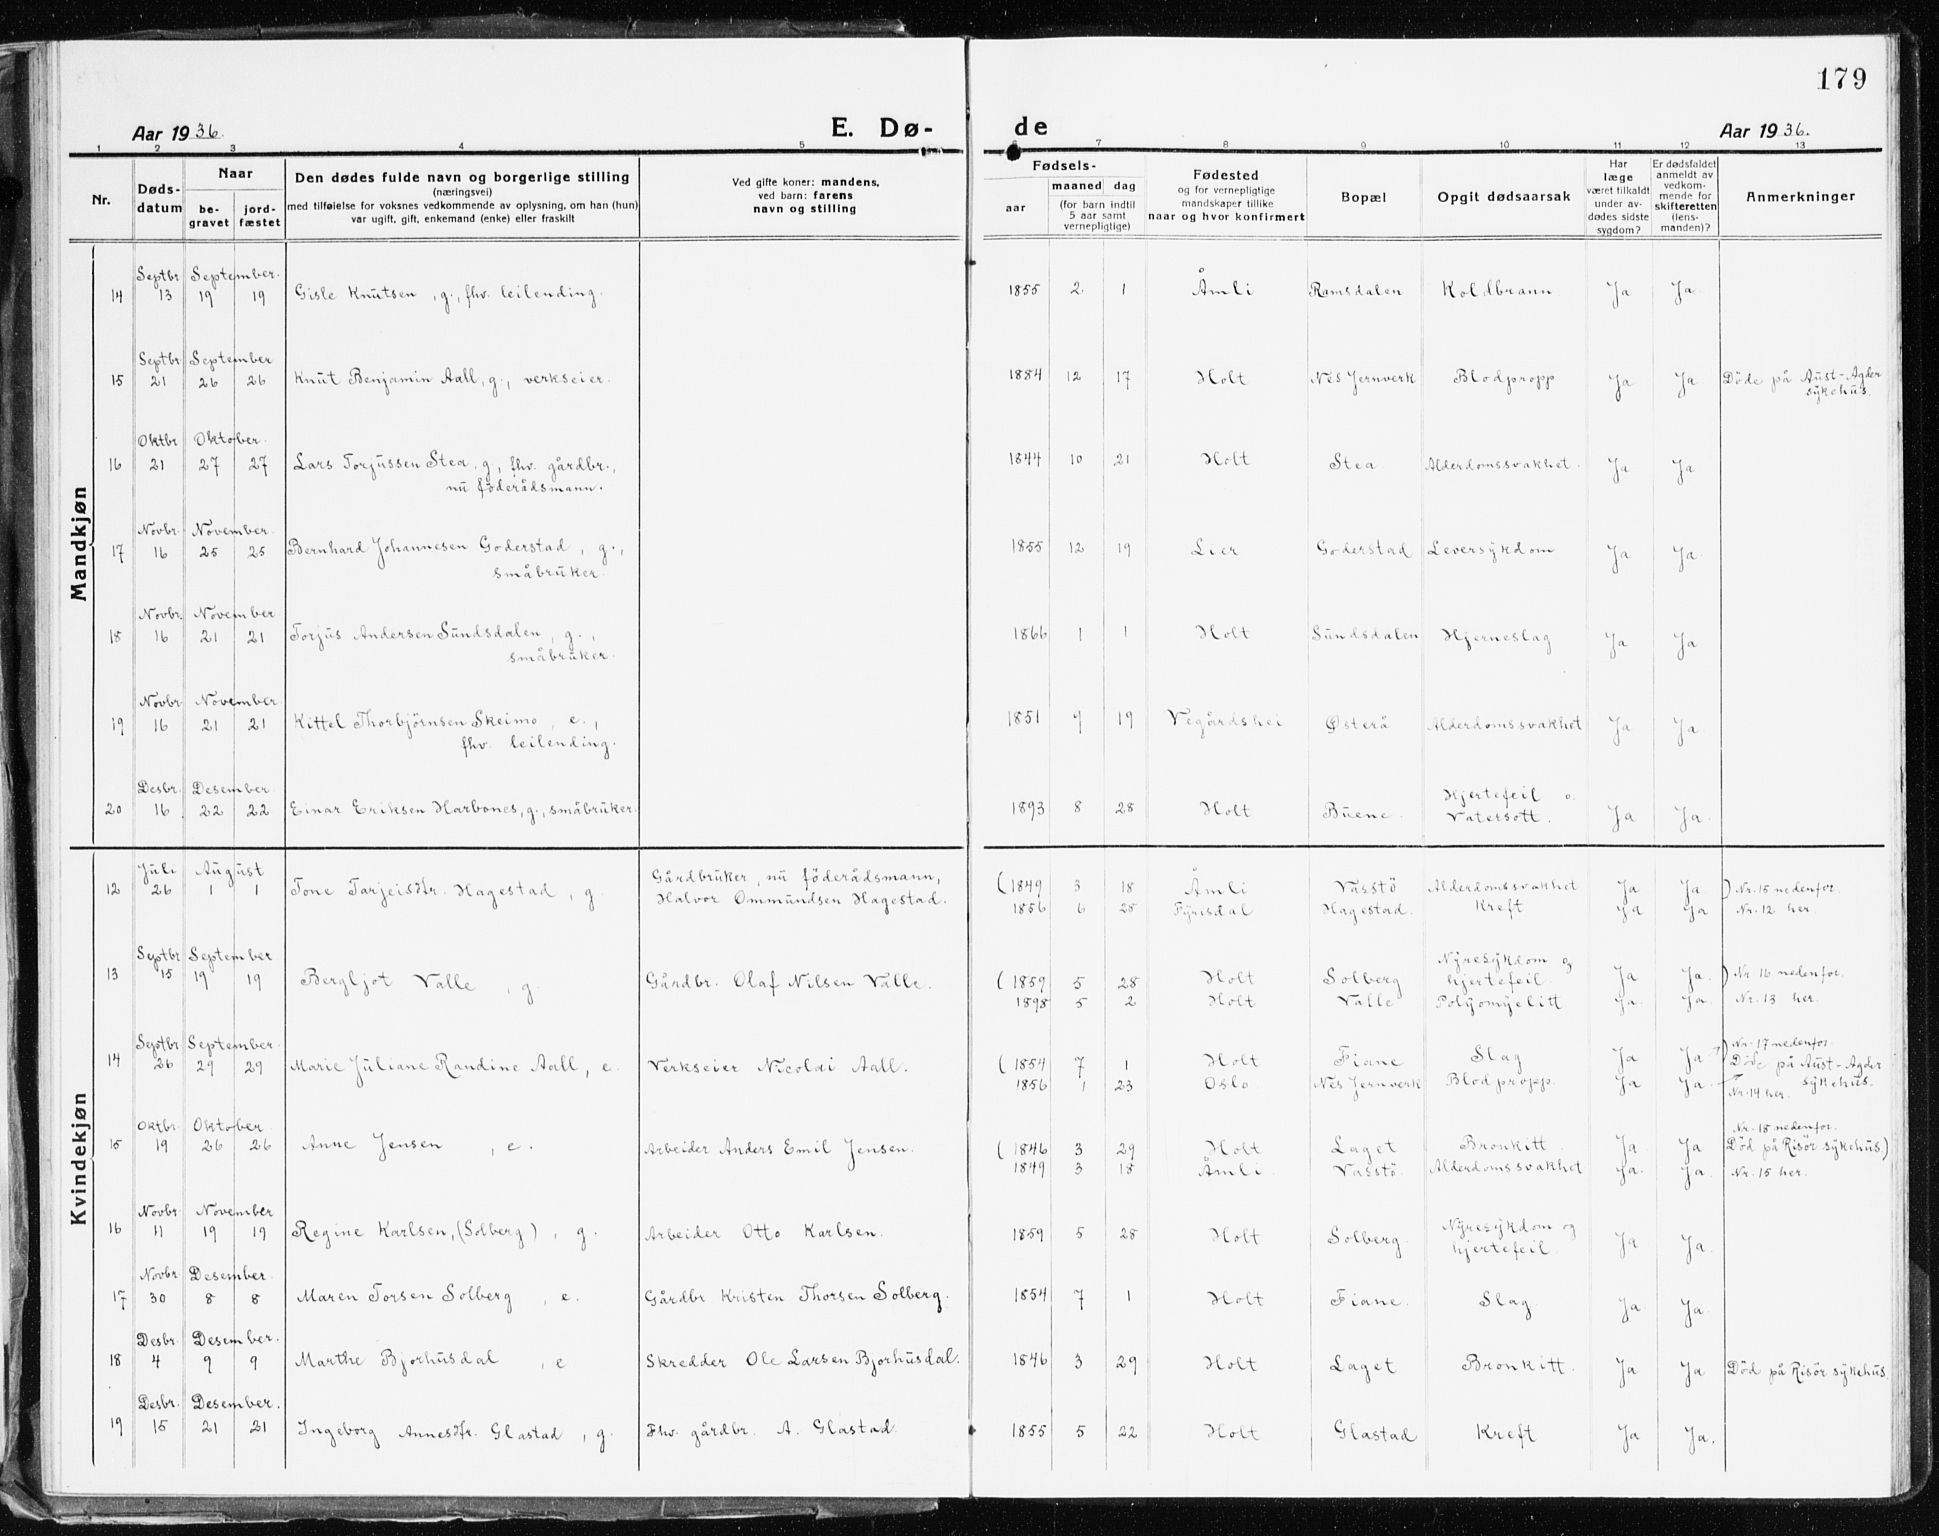 179
Aar 1936.
E. Dø-
de
Aar 1936.
1 2 3 4 5 7 8 9 10 11 12 13
Nr.
Døds-
datum
Naar
be-
gravet
jord-
fæstet
Den dødes fulde navn og borgerlige stilling
(næringsvei)
med tilføielse for voksnes vedkommende av oplysning, om han (hun)
var ugift, gift, enkemand (enke) eller fraskilt
Ved gifte koner: mandens,
ved barn: farens
navn og stilling
Fødsels-
aar
maaned dag
(for barn indtil
5 aar samt
vernepligtige)
Fødested
og for vernepligtige
mandskaper tillike
naar og hvor konfirmert
Bopæl
Opgit dødsaarsak
Har
læge
været tilkaldt
under av-
dødes sidste
sygdom?
Er dødsfaldet
anmeldt av
vedkom-
mende for
skifteretten
(lens-
manden)?
Anmerkninger
Mandkjøn
Septbr. September.
14 13 19 19 Gisle Knutsen, g., fhv. leilending. 1855 2 1 Åmli Ramsdalen Koldbrann Ja Ja.
Septbr. September
15 21 26 26 Knut Benjamin Aall, g., verkseier. 1884 12 17 Holt Nes Jernverk Blodpropp Ja Ja Döde på Aust-Agder
sykehus.
Oktbr. Oktober.
16 21 27 27 Lars Torjussen Stea, g., fhv. gårdbr., 1844 10 21 Holt Stea. Alderdomssvakhet. Ja Ja
nu föderådsmann.
Novbr. November.
17 16 25 25 Bernhard Johannesen Goderstad, g., 1855 12 19 Lier Goderstad Leversykdom Ja Ja.
småbruker.
Novbr. November
18 16 21 21 Torjus Andersen Sundsdalen, g., 1866 1 1 Holt Sundsdalen Hjerneslag Ja Ja
småbruker.
Novbr. November
19 16 21 21 Kittel Thorbjörnsen Skeimo, e., 1851 9 19 Vegårdshei Østerå Alderdomssvakhet Ja Ja
fhv. leilending.
Desbr. Desember.
20 16 22 22 Einar Eriksen Harbones, g., småbruker. 1893 8 28 Holt Buene. Hjertefeil o.
Vatersott. Ja Ja.
Kvindekjøn
Juli August
12 26 1 1 Tone Tarjeisdtr. Hagestad, g. Gårdbruker, nu föderådsmann,
Halvor Ommundsen Hagestad.
(1849 3 18 Åmli Vasstö Alderdomssvakhet Ja Ja) Nr. 15 nedenfor.
1856 6 28 Fyrisdal Hagestad. Kreft Ja Ja Nr. 12 her.
Septbr. September
13 15 19 19 Bergljot Valle, g. Gårdbr. Olaf Nilsen Valle.
(1859 5 28 Holt Solberg Nyresykdom og
hjertefeil. Ja Ja.) Nr 16 nedenfor.
1898 5 2 Holt Valle Polyomyelitt Ja. Ja. Nr. 13 her.
Septbr. September.
14 26 29 29 Marie Juliane Randine Aall, e. Verkseier Nicolai Aall.
(1854 7 1 Holt Fiane Slag Ja Ja) Nr. 17 nedenfor.
Döde på Aust-Agder
sykehus.
1856 1 23 Oslo Nes Jernverk Blodpropp. Ja Ja. Nr. 14 her.
Oktbr. Oktober.
15 19 26 26 Anne Jensen, e. Arbeider Anders Emil Jensen.
(1846 3 29 Holt Laget Bronkitt Ja Ja Nr. 18 nedenfor.
Död på Risör sykehus.)
1849 3 18 Åmli. Vasstö. Alderdomssvakhet Ja. Ja. Nr. 15 her.
Novbr. November
16 11 19 19 Regine Karlsen, (Solberg), g. Arbeider Otto Karlsen. 1859 5 28 Holt Solberg. Nyresykdom og
hjertefeil. Ja Ja.
Novbr. Desember.
17 30 8 8 Maren Torsen Solberg, e. Gårdbr Kristen Thorsen Solberg. 1854 7 1 Holt Fiane. Slag Ja Ja.
Desbr. Desember.
18 4 9 9 Marthe Bjorhusdal, e Skredder Ole Larsen Bjorhusdal. 1846 3 29 Holt Laget Bronkitt. Ja Ja Död på Risör sykehus.
Desbr. Desember.
19 15 21 21 Ingeborg Annesdtr. Glastad, g. Fhv. gårdbr. A. Glastad. 1855 5 22 Holt Glastad Kreft Ja Ja.